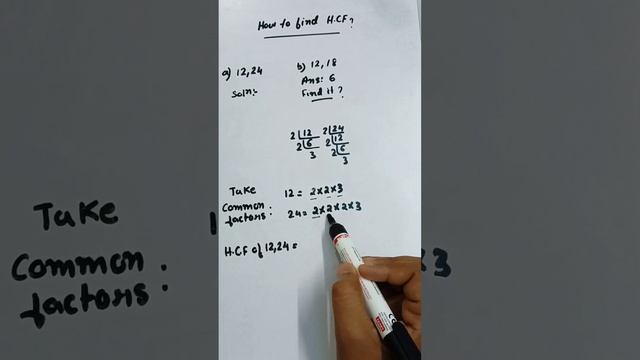 How to find H.C.F?
a) 12,24
b) 12,18
Soln:-
Ans: 6
Find it?
2 12 2 24
2 6 2 12
3 2 6
3
Take
Common
factors:
12 = 2×2×3
24 = 2×2×2×3
H.C.F of 12,24 =
Take
Common :
factors:
×3